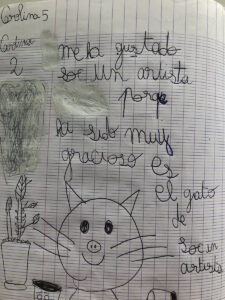 Carolina 5
me ha gustado
soc un artista
porqe
ha sido muy
gracioso es
el gato
de
soc un
artista
2